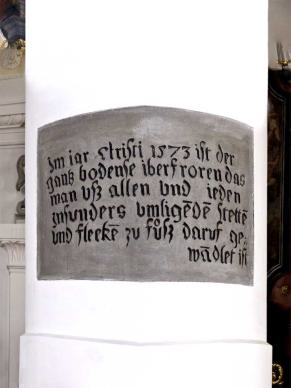 Im iar Christi 1573 ist der
gantz bodense iberfroren das
man vsz allen vnd ieden
insunders vmligēdē stettē
vnd fleckē zu fůsz daruf ge⸗
wādlet ist